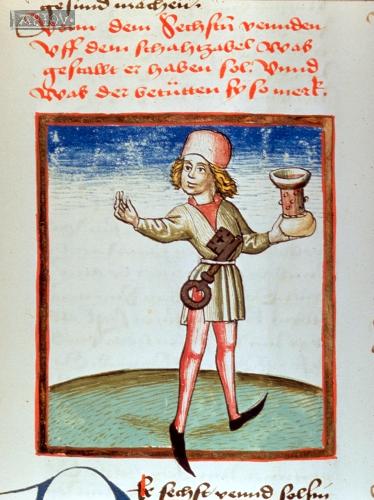 gesund machen.
Vonn dem Sechsten vennden
Vff dem schahtzabel was
gestallt er haben sol. Vnnd
was der betütten sy so merk.
sechst vennd sol